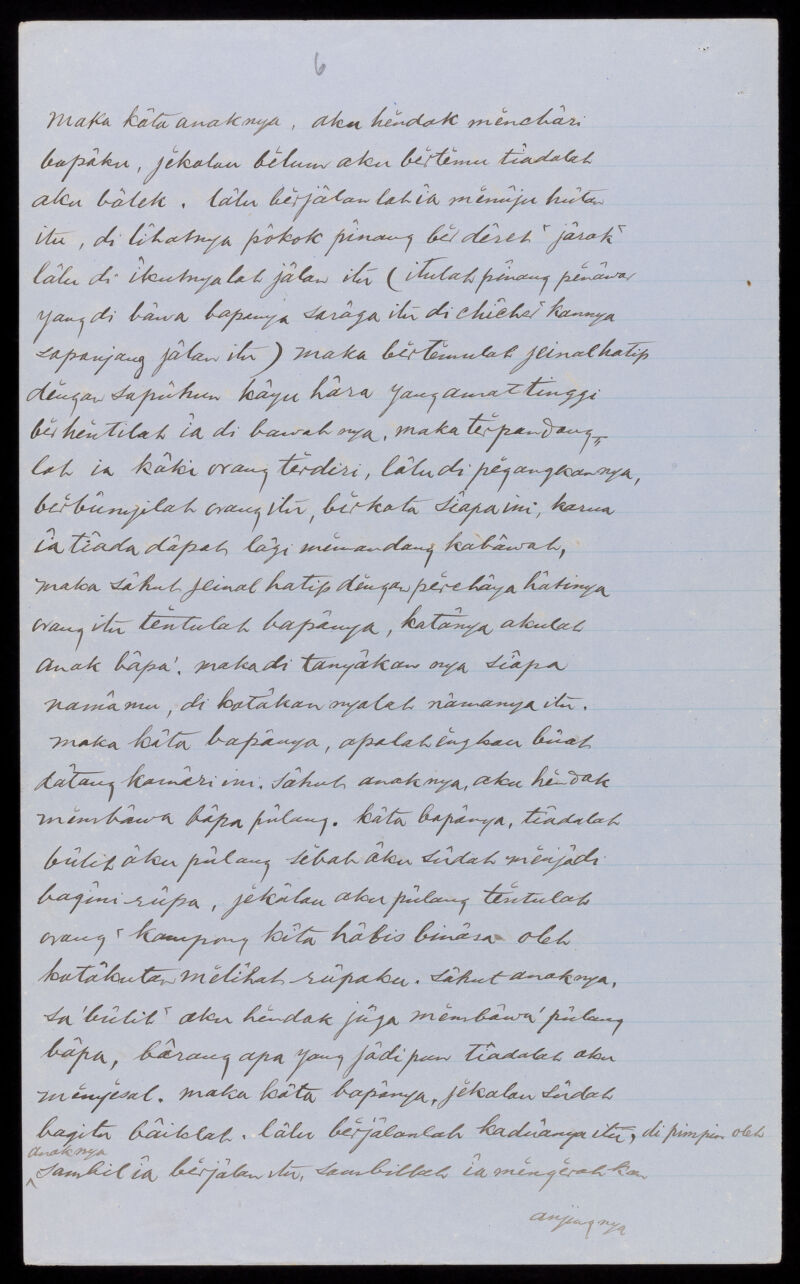 6
maka kâta anaknya, aku hĕndak mĕnchâri
bapâku, jĕkalau bĕlum aku bĕrtĕmu tîadalah
aku bâlek. lâlu bĕrjâlan lah îa mĕnûju hûtan
itu, di lîhatnya pôkok pînang bĕr dêret² jârak²
lâlu di îkutnyalah jâlan itu (itulah pînang pĕnâwar
yang di bâwa bapanya sarâga itu di chîcher kannya
sapanjang jâlan itu) maka bĕrtĕmulah jeinalhatip
dĕngan sapûhun kâyu hâra yang amat tinggi
bĕrhĕntilah îa di bawah nya, maka tĕrpandang„
lah ia kâki orang tĕrdiri, lâlu di pĕgangkannya,
bĕrbûnyilah orang itu, bĕrkata sîapa ini, karna
îa tîada dâpat lâgi mĕmandang kabâwah,
maka sâhut jeinal hatip dĕngan pĕrchâya hâtinya
orang itu tĕntulah bapânya, katânya akulah
anak bâpa'. maka di tanyâkan nya sîapa
namâmu, di katâkan nyalah nâmanya itu.
maka kâta bapânya, apalah ĕngkau bûat
dâtang kamâri ini. sâhut anaknya, aku hĕndak
mĕmbâwa bâpa pûlang. kâta bapânya, tîadalah
bûlih âku pûlang sĕbab âku sûdah mĕnjâdi
bagîni rûpa, jĕkâlau aku pûlang tĕntulah
orang² kampong kîta hâbis binâsa oleh
katâkutan mĕlîhat rûpaku. sâhut anaknya,
sa'bûlih² aku hĕndak jûga mĕmbâwa' pûlang
bâpa, bârang apa yang jâdi pun tîadalah aku
mĕnyĕsal. maka kâta bapânya, jĕkalau sûdah
bagîtu bâiklah. lâlu bĕrjâlanlah kadûanya itu, di pimpin oleh
anaknya
sambil îa bĕrjâlan itu, sambillah îa mĕngĕrah kan
anjingnya